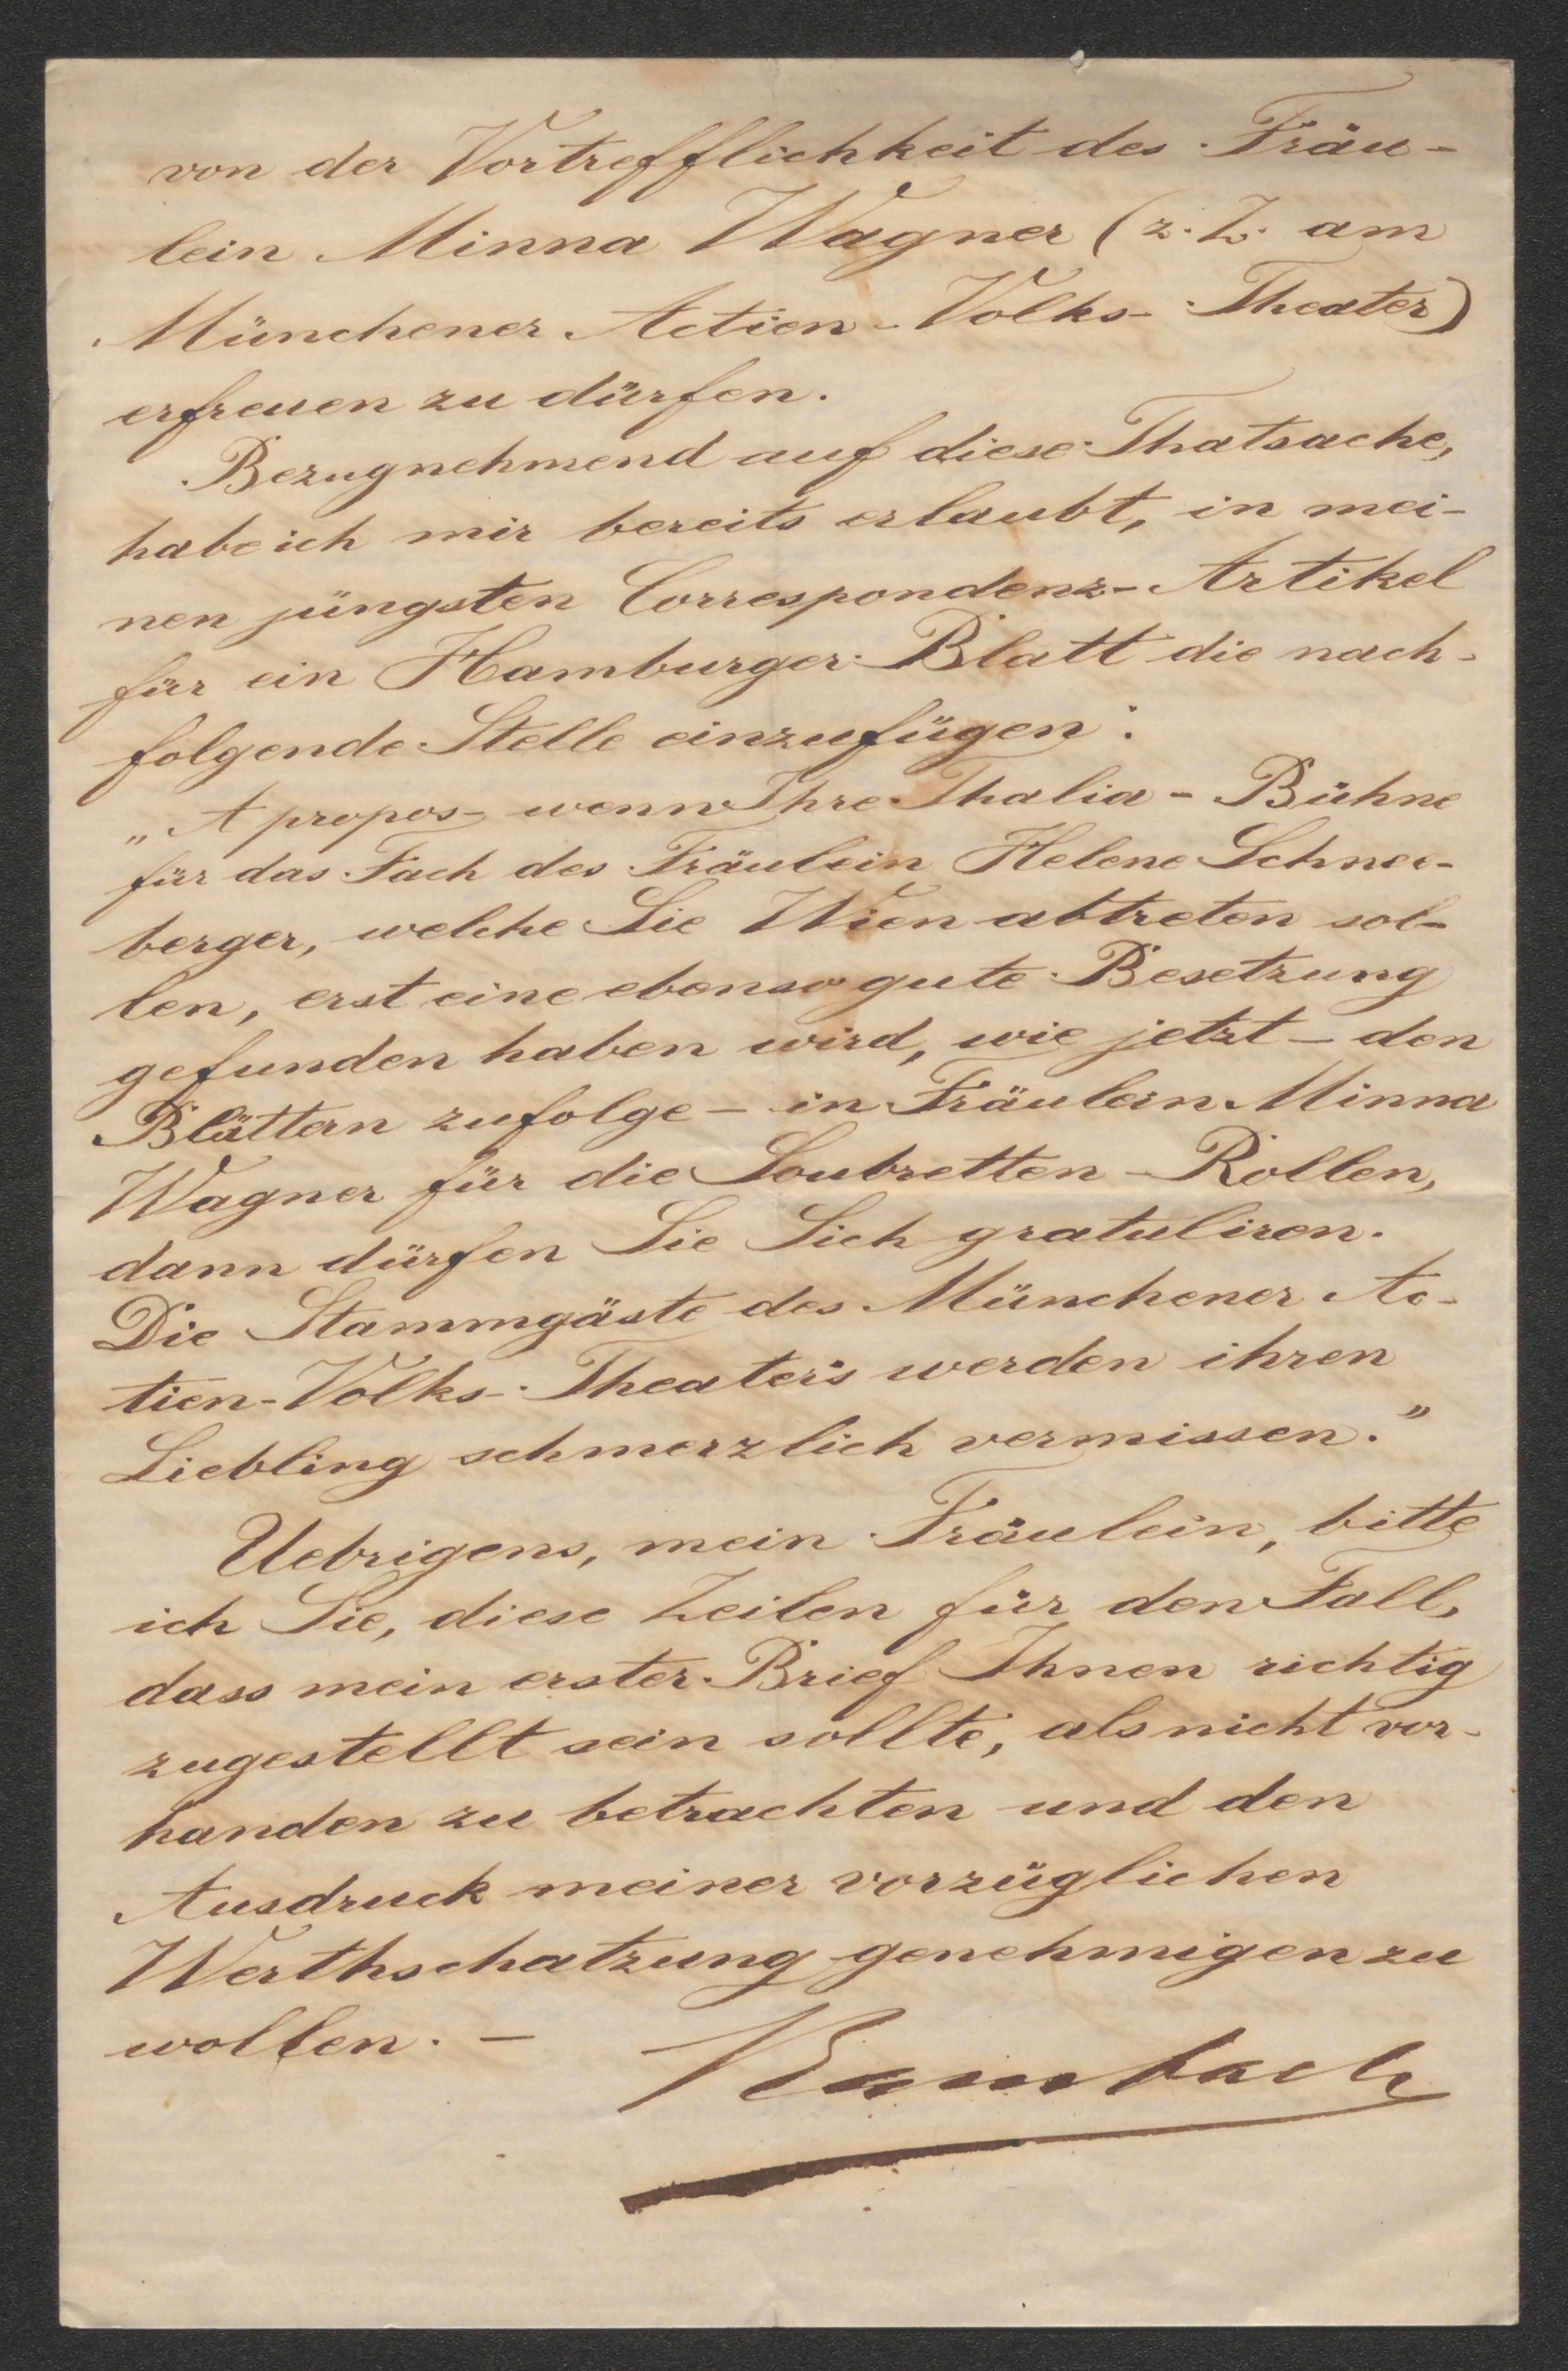 von der Vortrefflichkeit des Fräu-
lein Minna Wagner (z. Z. am
Münchener Actien-Volks-Theater)
erfreuen zu dürfen.
Bezugnehmend auf diese Thatsache,
habe ich mir bereits erlaubt, in mei-
nen jüngsten Correspondenz-Artikel
für ein Hamburger Blatt die nach-
folgende Stelle einzufügen:
„A propos, wenn Ihre Thalia-Bühne
für das Fach des Fräulein Helene Schnee-
berger, welche Sie Wien abtreten sol-
len, erst eine ebenso gute Besetzung
gefunden haben wird, wie jetzt – den
Blättern zufolge – in Fräulein Minna
Wagner für die Soubretten-Rollen,
dann dürfen Sie Sich gratuliren.
Die Stammgäste des Münchener Ac-
tien-Volks-Theaters werden ihren
Liebling schmerzlich vermissen.”
Uebrigens, mein Fräulein, bitte
ich Sie, diese Zeilen für den Fall,
dass mein erster Brief Ihnen richtig
zugestellt sein sollte, als nicht vor-
handen zu betrachten und den
Ausdruck meiner vorzüglichen
Werthschatzung genehmigen zu
wollen. –